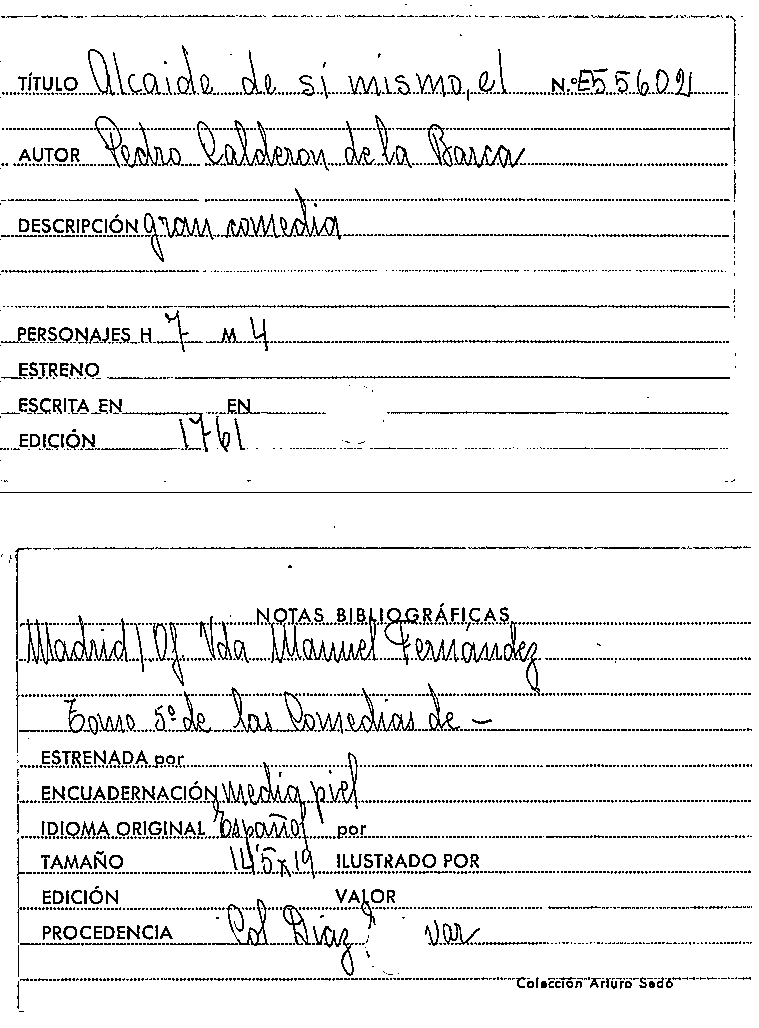 TÍTULO Alcaide de sí mismo, el N.º E556021
AUTOR Pedro Calderon de la Barca
DESCRIPCIÓN gran comedia
PERSONAJES H 7 M 4
ESTRENO
ESCRITA EN EN
EDICIÓN 1761
NOTAS BIBLIOGRÁFICAS
Madrid / Of Vda Manuel Fernández
Tomo 5º de las Comedias de —
ESTRENADA por
ENCUADERNACIÓN media piel
IDIOMA ORIGINAL Español por
TAMAÑO 14'5x19 ILUSTRADO POR
EDICIÓN VALOR
PROCEDENCIA Col Díaz var
Colección Arturo Sedó